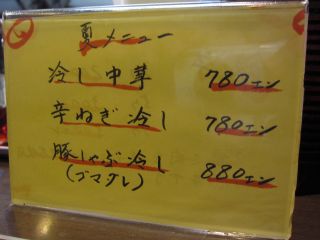 夏メニュー
冷し中華 780エン
辛ねぎ冷し 780エン
豚しゃぶ冷し 880エン
(ゴマダレ)